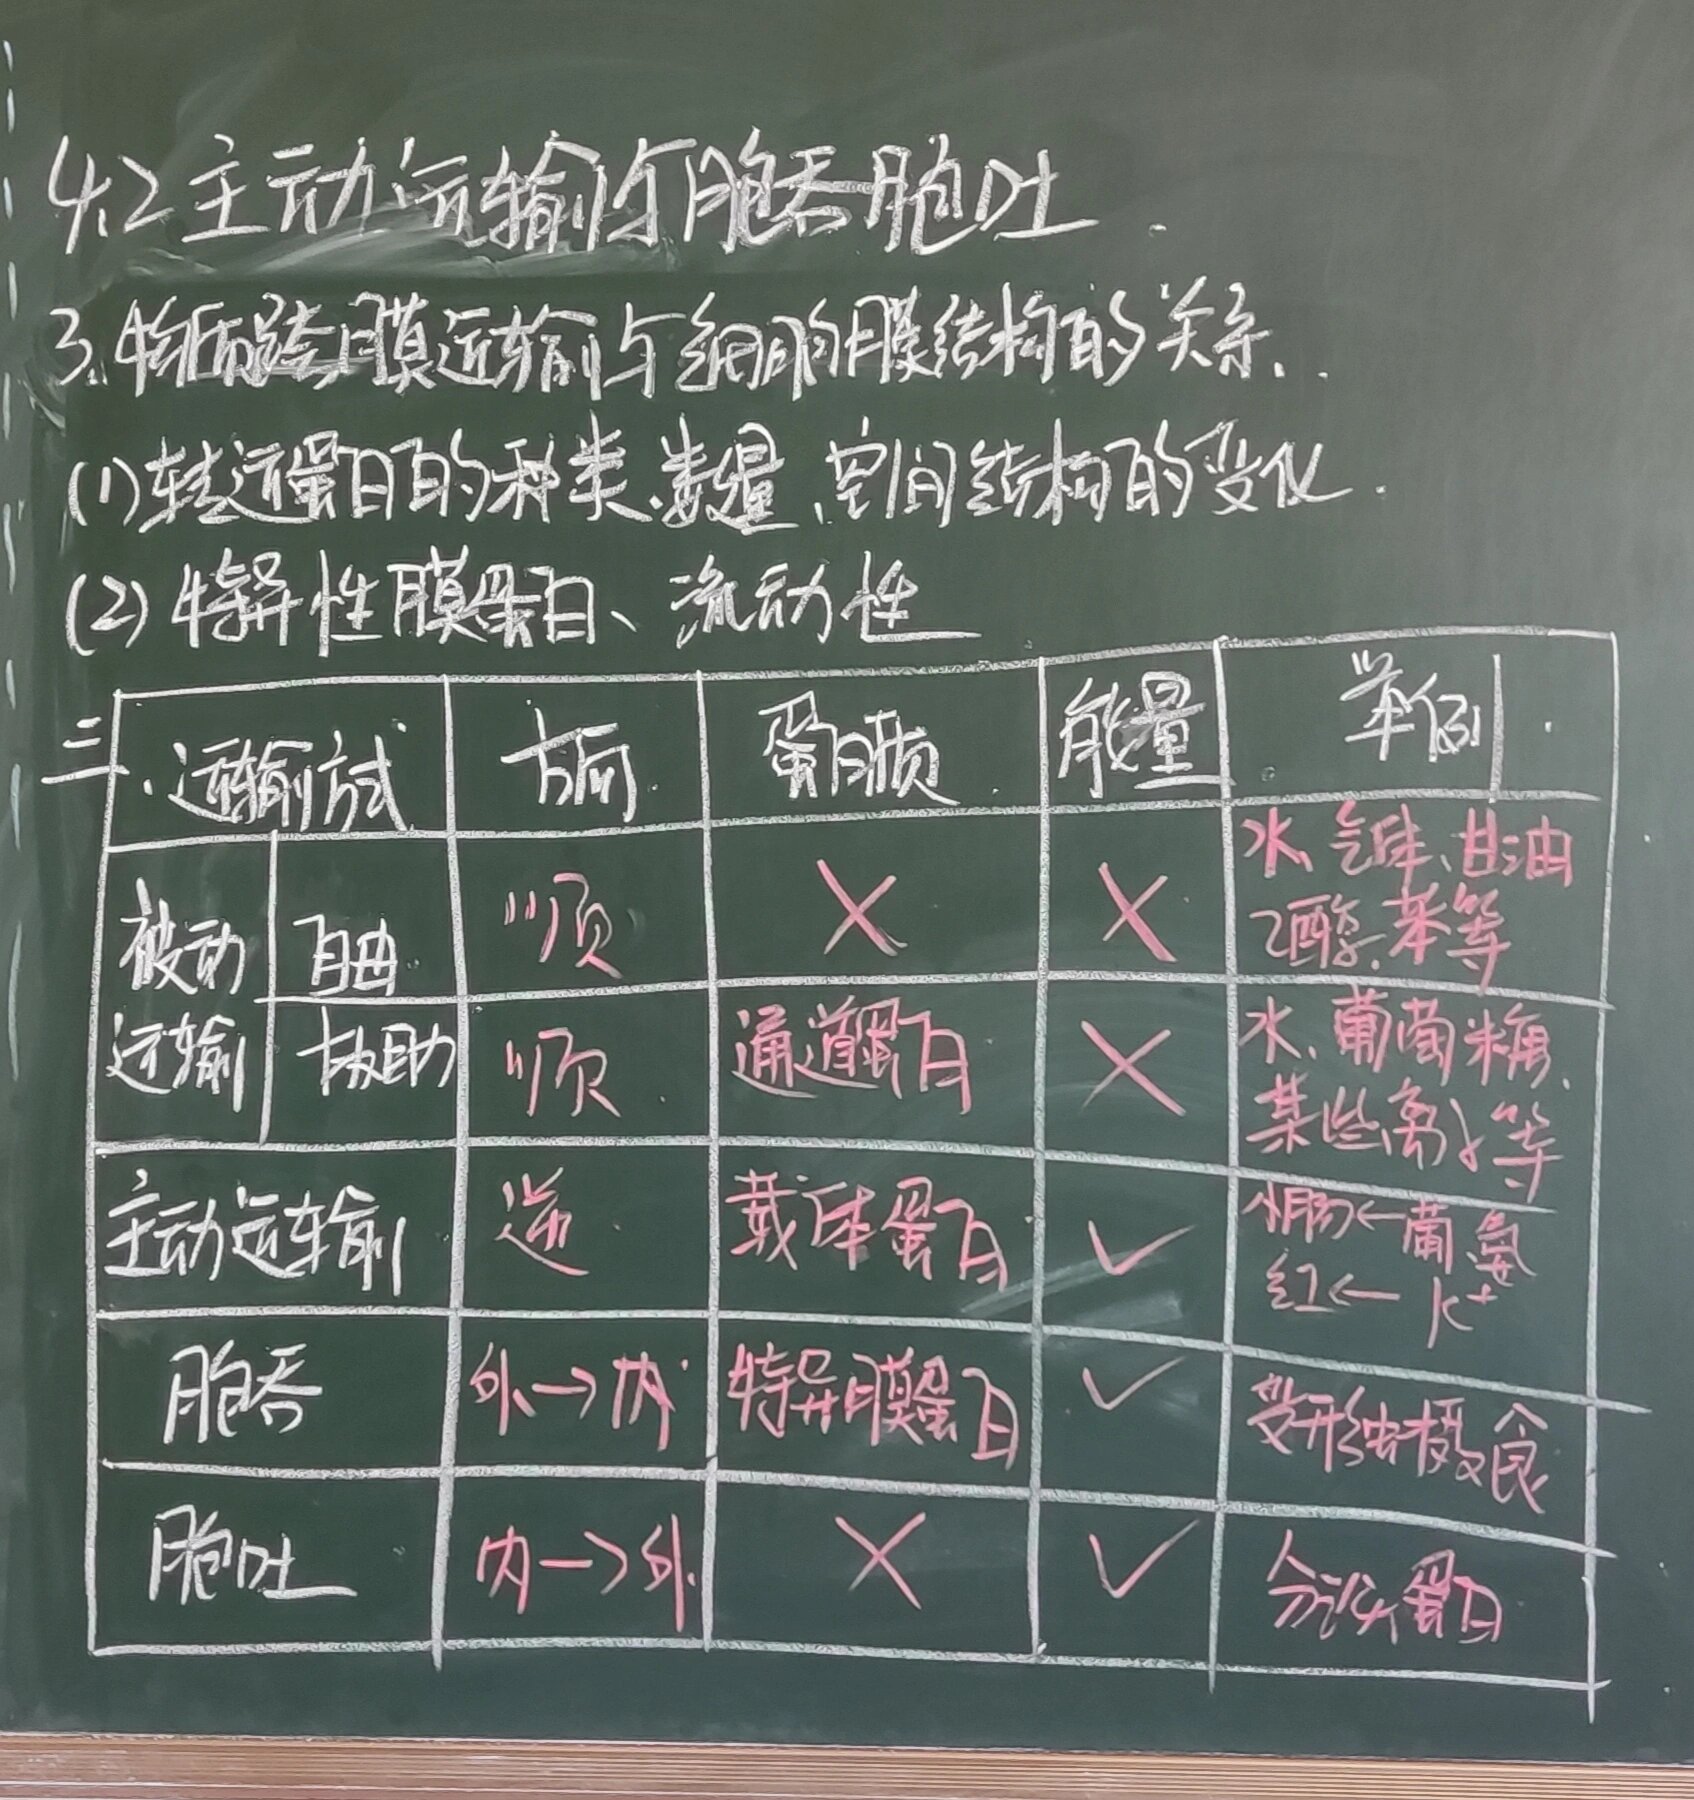 4.2 主动运输与胞吞胞吐
3.物质跨膜运输与细胞膜结构的关系.
(1)转运蛋白的种类、数量、空间结构的变化.
(2)特异性膜蛋白、流动性
三、运输方式 方向 蛋白质 能量 举例
被动运输 自由 顺 × × 水、气体、甘油 乙醇、苯等
协助 顺 通道蛋白 × 水、葡萄糖、某些离子等
主动运输 逆 载体蛋白 ✓ 小肠←葡、氨 红←K⁺
胞吞 外→内 特异膜蛋白 ✓ 变形虫摄食
胞吐 内→外 × ✓ 分泌蛋白